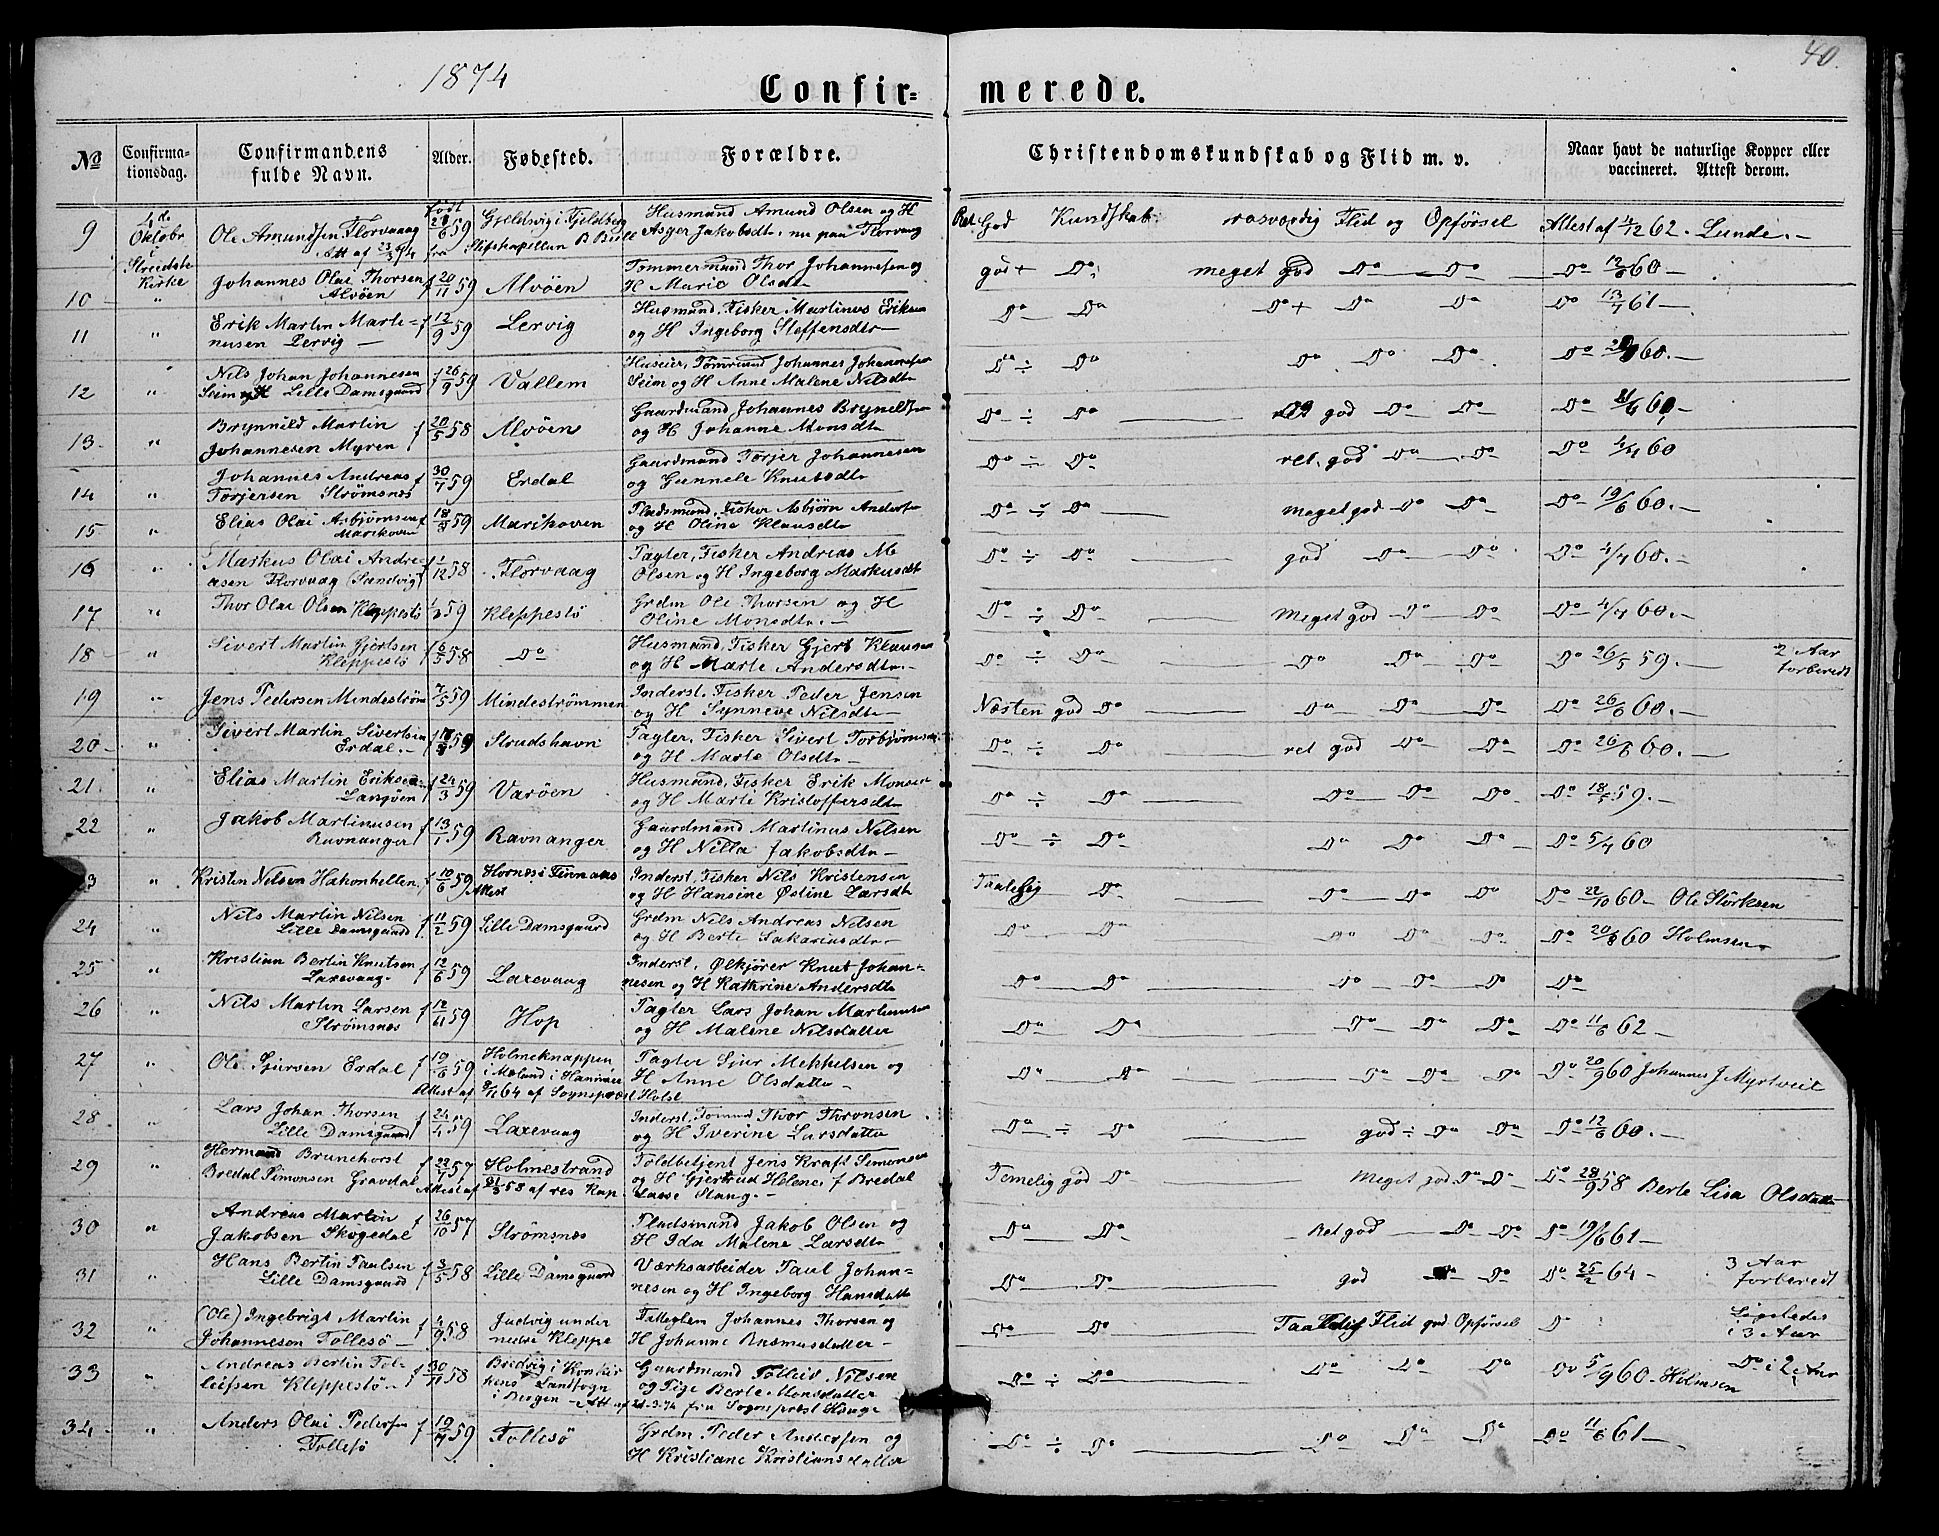 1874
40.
Confir- merede.
No
Confirma-
tionsdag.
Confirmandens
fulde Navn.
Alder.
Fødested.
Forældre.
Christendomskundskab og Flid m. v.
Naar havt de naturlige Kopper eller
vaccineret. Attest derom.
født
9 4de Oktobr i Kirke Ole Amundsen Florvaag 59 Husmand Amund Olsen og H
Att af fra Stifskapellan B Bull Asger Jakobsdtr, nu paa Florvaag
Ret God Kundskab rosværdig Flid og Opførsel Attest af 4/12 62. Lunde.-
10 " Johannes Olai Thorsen Alvøen f 20/11 59 Alvøen Tømmermand Thor Johannesen og
H Marie Olsdtr
god + Do meget god Do Do Do 60-
11 " Erik Martin Marti-
nusen Lervig f 12/9 59 Lervig Husmand, Fisker Martinus Eriksen
og H Ingeborg Steffensdtr
Do Do Do + Do Do Do 13/7 61-
12 " Nils Johan Johannesen
Seim Lille Damsgaard f 26/9 59 Vallem Huseier, Tømrmd Johannes Johannesen
Seim og H Anne Malene Nilsdtr
Do ÷ Do Do Do Do Do 60.-
13 " Brynnild Martin
Johannesen Myren f 20/5 58 Alvøen Gaardmand Johannes Bryneldsen
og H Johanne Monsdtr
Do ÷ Do ret god Do Do Do 60-
14 " Johannes Andreas
Torjersen Strømsnes f 30/7 59 Erdal Gaardmand Torjer Johannesen
og Gunnele Knutsdtr
Do ÷ Do ret god Do Do Do 4/4 60
15 " Elias Olai Asbjørnsen
Marikoven f 59 Marikoven Pladsmand, Fisker Asbjørn Andersen
og H Oline Klausdtr
Do ÷ Do meget god Do Do Do 19/6 60.-
16 " Markus Olai Andre-
asen Florvaag (Sandvig) f 1/12 58 Florvaag Pagter, Fisker Andreas M
Olsen og H Ingeborg Markusdtr
Do ÷ Do god Do Do Do 4/4 60.-
17 " Thor Olai Olsen Kleppestø 59 Kleppestø Grdm Ole Thorsen og H
Oline Monsdtr.-
Do ÷ Do Meget god Do Do Do 4/4 60.-
18 " Sivert Martin Gjertsen
Kleppestø f 6/5 58 Do Husmand, Fisker Gjert Klausen
og H Marte Andersdtr.-
Do ÷ Do Do Do Do Do 26/5 59.- 2 Aar
forberedt
19 " Jens Pedersen Mindestrøm 7/5 59 Mindestrømmen Inderst, Fisker Peder Jensen
og H Synneve Nilsdtr
Næsten god Do Do Do Do Do 26/6 60.-
20 " Sivert Martin Sivertsen
Erdal.- f 59 Strudshavn Pagter, Fisker Sivert Torbjørnsen
og H Marte Olsdtr-
Do ÷ Do ret god Do Do Do 26/6 60.-
21 " Elias Martin Eriksen
Langøen f 24/3 59 Varøen Husmand, Fisker Erik Monsen
og H Marte Kristoffersdtr
Do ÷ Do Do Do Do Do 59.-
22 " Jakob Martinusen
Ravnanger f 13/1 59 Ravnanger Gaardmand Martinus Nilsen
og H Nilla Jakobsdtr-
Do ÷ Do Do Do Do Do 5/4 60
23 " Kristen Nilsen Hakonhellen f 10/6 59 Hornæs i Finnaas Attest Inderst, Fisker Nils Kristensen
og H Hansine Østine Larsdtr
Taalelig Do Do Do Do Do 22/10 60- Ole Størksen
24 " Nils Martin Nilsen
Lille Damsgaard f 11/2 59 Lille Damsgaard Grdm Nils Andreas Nilsen
og H Berte Sakariasdtr-
Do Do Do Do Do Do 60 Holmsen
25 " Kristian Bertin Knutsen
Laxevaag- f 12/6 59 Laxevaag Inderst, Ølkjører Knut Johan-
nesen og H Kathrine Andersdtr
Do Do Do Do Do Do
26 " Nils Martin Larsen
Strømsnes f 59 Hop Pagter Lars Johan Martinusen
og H Malene Nilsdatter
Do Do Do Do Do Do 11/6 62-
27 " Ole Sjursen Erdal f 19/6 59 Holmeknappen
i Meland i Hammer Pagter Sjur Mekkelsen og
H Anne Olsdatter-
Attest af 64 af Sognspræst Holst
Do Do Do Do Do Do 20/9 60 Johannes J Myrtveit
28 " Lars Johan Thorsen
Lille Damsgaard f 24/4 59 Laxevaag Inderst, Tømmd Thor Thronsen
og H Iverine Larsdatter
Do ÷ Do god ÷ Do Do Do 12/6 60.-
29 " Hermand Brunchorst
Bredal Simonsen Gravdal f 22/7 57 Holmestrand Toldbetjent Jens Kraft Simonsen
og H Gjertrud Helene, f Bredal
Attest af 58 af res Kap. Lasse Stang.-
Temelig god Do Meget god Do Do Do 28/9 58 Berte Lisa Olsdatter
30 " Andreas Martin
Jakobsen Skogedal f 26/10 57 Strømsnes Pladsmand Jakob Olsen og
H Ida Malene Larsdtr
Do Do Ret god Do Do Do 19/6 61-
31 " Hans Bertin Paulsen
Lille Damsgaard f 3/5 58 Lille Damsgaard Værksarbeider Paul Johan-
nesen og H Ingeborg Hansdatter
Do Do god Do Do Do 25/2 64- 3 Aar
forberedt
32 " (Ole) Ingebrigt Martin
Johannesen Follesø f 4/9 58 Judvig under
nedre Kleppe Fattiglem Johannes Thorsen og
H Johanne Rasmusdatter-
Do Do Taalelig Flid god Opførsel Do Ligeledes
i 3 Aar
33 " Andreas Bertin Tol-
leifsen Kleppestø- f 30/11 58 Bredvig i Korskir
kens Landsogn
i Bergen - Att af 21-3-74 fra Sognepræst Hauge Gaardmand Tolleiv Nilsen
og Pige Berte Monsdatter
Do ÷ Do Do Do Do Do 5/9 60- Holmsen Do i 2 Aar
34 " Anders Olai Pedersen
Follesø f 59 Follesø Grdm Peder Andersen og
H Kristiane Kristiansdatter
Do ÷ Do Do Do Do Do 11/6 61-